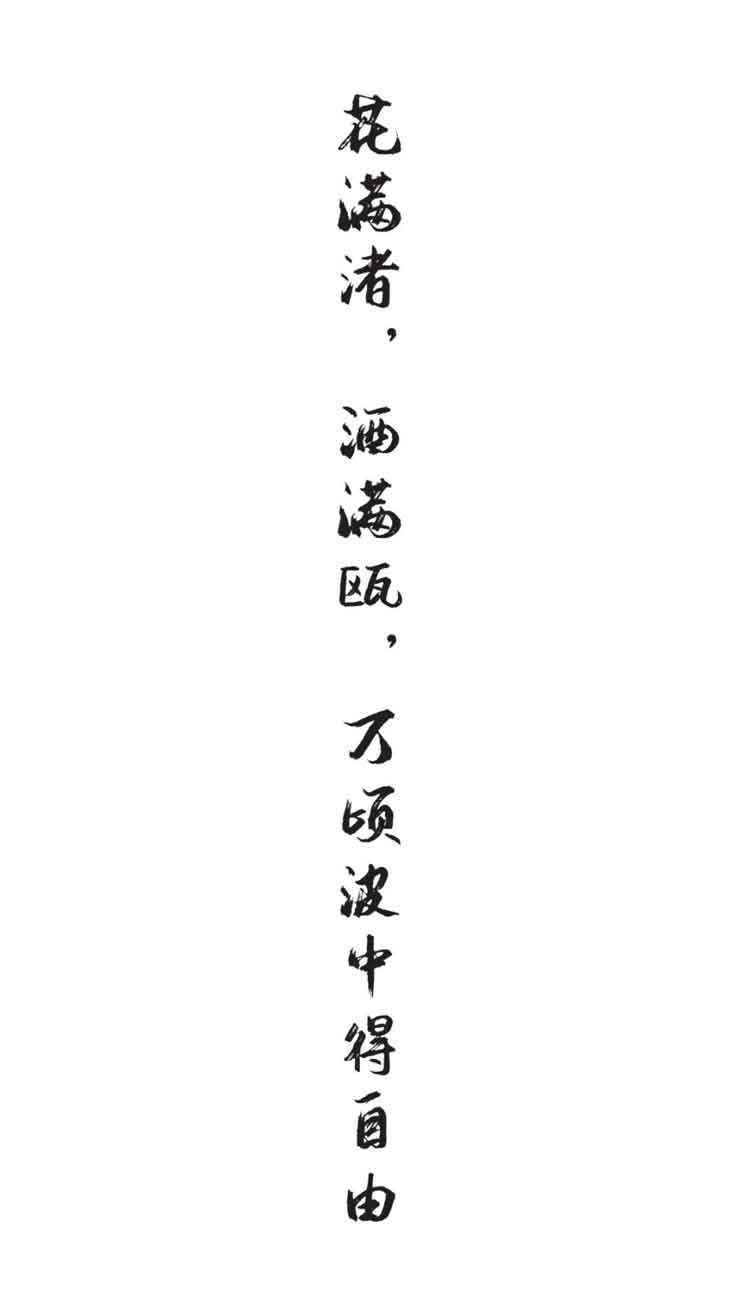 花满渚，酒满瓯，万顷波中得自由